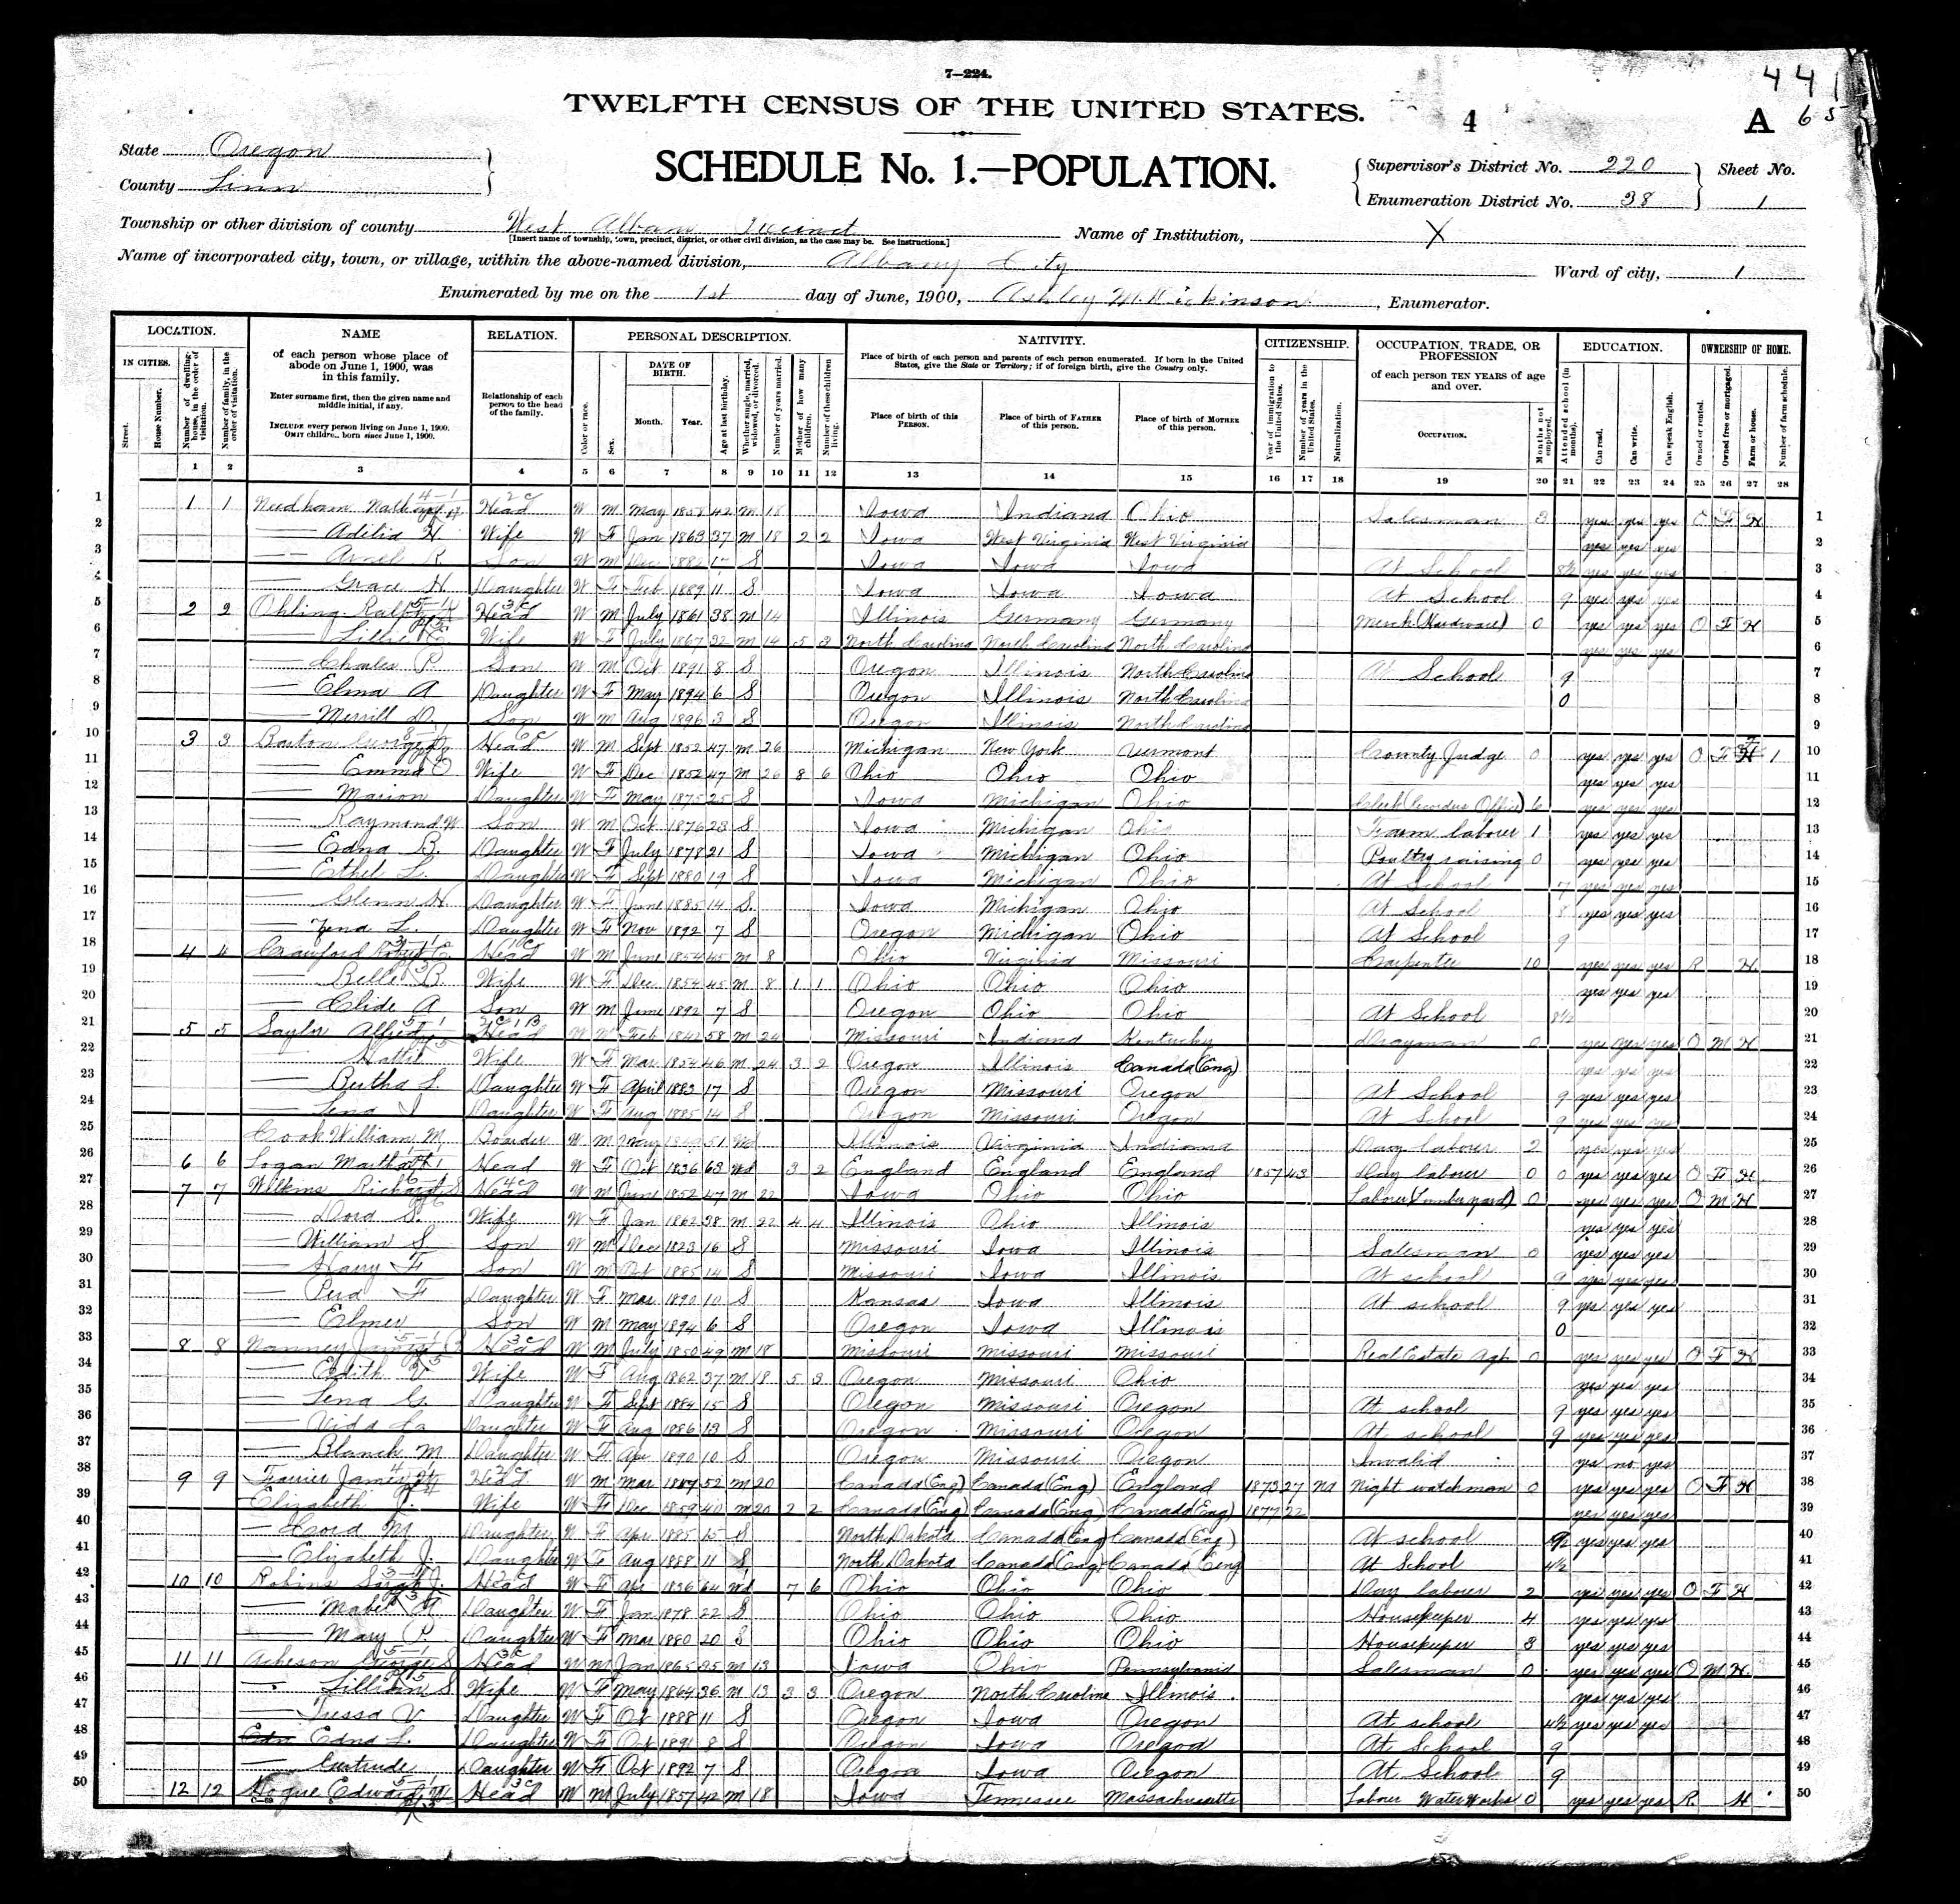 7—224.
4 4 1
TWELFTH CENSUS OF THE UNITED STATES.
4
A 6 5
State Oregon
County Linn
SCHEDULE No. 1.—POPULATION.
Supervisor's District No. 220 Sheet No.
Enumeration District No. 38 1
Township or other division of county West Albany Name of Institution, X
[Insert name of township, town, precinct, district, or other civil division, as the case may be. See instructions.]
Name of incorporated city, town, or village, within the above-named division, Albany City Ward of city, 1
Enumerated by me on the 1st day of June, 1900, Ashley M. Dickinson, Enumerator.
LOCATION. NAME RELATION. PERSONAL DESCRIPTION. NATIVITY. CITIZENSHIP. OCCUPATION, TRADE, OR PROFESSION EDUCATION. OWNERSHIP OF HOME.
IN CITIES. Street. House Number. Number of dwelling-house, in the order of visitation. Number of family, in the order of visitation.
of each person whose place of abode on June 1, 1900, was in this family.
Enter surname first, then the given name and middle initial, if any.
INCLUDE every person living on June 1, 1900. OMIT children born since June 1, 1900.
Relationship of each person to the head of the family.
Color or race. Sex. DATE OF BIRTH. Month. Year. Age at last birthday. Whether single, married, widowed, or divorced. Number of years married. Mother of how many children. Number of these children living.
Place of birth of each person and parents of each person enumerated. If born in the United States, give the State or Territory; if of foreign birth, give the Country only.
Place of birth of this PERSON. Place of birth of FATHER of this person. Place of birth of MOTHER of this person.
Year of immigration to the United States. Number of years in the United States. Naturalization.
of each person TEN YEARS of age and over.
OCCUPATION. Months not employed. Attended school (in months). Can read. Can write. Can speak English. Owned or rented. Owned free or mortgaged. Farm or house. Number of farm schedule.
1 2 3 4 5 6 7 8 9 10 11 12 13 14 15 16 17 18 19 20 21 22 23 24 25 26 27 28
1 1 1 Needham Head W M May 42 M 18 Iowa Indiana Ohio Salesman 3 yes yes yes O F H 1
2 — Adelia H Wife W F Jan 1863 37 M 18 2 2 Iowa West Virginia West Virginia yes yes yes 2
3 — R Son W M Dec 1882 S Iowa Iowa Iowa At School 8½ yes yes yes 3
4 — Grace H Daughter W F Feb 1889 11 S Iowa Iowa Iowa At School 9 yes yes yes 4
5 2 2 Ohling Ralph Head W M July 1861 38 M 14 Illinois Germany Germany Merch (Hardware) 0 yes yes yes O F H 5
6 — Lillie Wife W F July 1867 32 M 14 5 3 North Carolina North Carolina North Carolina yes yes yes 6
7 — Charles P Son W M Oct 1891 8 S Oregon Illinois North Carolina At School 9 7
8 — Elma A Daughter W F May 1894 6 S Oregon Illinois North Carolina 0 8
9 — Merrill D Son W M Aug 1896 3 S Oregon Illinois North Carolina 9
10 3 3 Barton George Head W M Sept 1852 47 M 26 Michigan New York Vermont County Judge 0 yes yes yes O F H 1 10
11 — Emma O Wife W F Dec 1852 47 M 26 8 6 Ohio Ohio Ohio yes yes yes 11
12 — Marion Daughter W F May 1875 25 S Iowa Michigan Ohio Clerk (Recorders Office) 6 yes yes yes 12
13 — Raymond W Son W M Oct 1876 23 S Iowa Michigan Ohio Farm labourer 1 yes yes yes 13
14 — Edna B. Daughter W F July 1878 21 S Iowa Michigan Ohio Poultry raising 0 yes yes yes 14
15 — Ethel L. Daughter W F Sept 1880 19 S Iowa Michigan Ohio At School 7 yes yes yes 15
16 — Glenn H Daughter W F June 1885 14 S Iowa Michigan Ohio At School 8 yes yes yes 16
17 — Zena L. Daughter W F Nov 1892 7 S Oregon Michigan Ohio At School 9 17
18 4 4 Crawford Head W M June 1854 45 M 8 Ohio Virginia Missouri Carpenter 10 yes yes yes R H 18
19 — Belle B. Wife W F Dec 1854 45 M 8 1 1 Ohio Ohio Ohio yes yes yes 19
20 — Clide A Son W M June 1892 7 S Oregon Ohio Ohio At School 8½ 20
21 5 5 Saylor Alfred Head W M Feb 1842 58 M 24 Missouri Indiana Kentucky Drayman 0 yes yes yes O M H 21
22 — Hattie Wife W F Mar 1854 46 M 24 3 2 Oregon Illinois Canada (Eng) yes yes yes 22
23 — Bertha L. Daughter W F April 1883 17 S Oregon Missouri Oregon At School 9 yes yes yes 23
24 — Lena I Daughter W F Aug 1885 14 S Oregon Missouri Oregon At School 9 yes yes yes 24
25 Cook William M Boarder W M May 51 Wd Illinois Virginia Indiana Day labourer 2 yes yes yes 25
26 6 6 Logan Martha Head W F Oct 1836 63 Wd 3 2 England England England 1857 43 Day labour 0 0 yes yes yes O F H 26
27 7 7 Wilkins Richard S Head W M June 1852 47 M 22 Iowa Ohio Ohio Labour (Lumber yard) 0 yes yes yes O M H 27
28 — Dora S. Wife W F Jan 1862 38 M 22 4 4 Illinois Ohio Illinois yes yes yes 28
29 — William S Son W M Dec 1823 16 S Missouri Iowa Illinois Salesman 0 yes yes yes 29
30 — Harry F Son W M Oct 1885 14 S Missouri Iowa Illinois At school 9 yes yes yes 30
31 — F Daughter W F Mar 1890 10 S Kansas Iowa Illinois At school 9 yes yes yes 31
32 — Elmer Son W M May 1894 6 S Oregon Iowa Illinois 0 32
33 8 8 Nanney James Head W M July 1850 49 M 18 Missouri Missouri Missouri Real Estate Agt 0 yes yes yes O F H 33
34 — Edith V Wife W F Aug 1862 37 M 18 5 3 Oregon Missouri Ohio yes yes yes 34
35 — Lena G. Daughter W F Sept 1884 15 S Oregon Missouri Oregon At school 9 yes yes yes 35
36 — Vida Daughter W F Aug 1886 13 S Oregon Missouri Oregon At school 9 yes yes yes 36
37 — Blanch M Daughter W F Apr 1890 10 S Oregon Missouri Oregon Invalid yes no yes 37
38 9 9 Farrier James Head W M Mar 52 M 20 Canada (Eng) Canada (Eng) England 1873 27 Na Night watchman 0 yes yes yes O F H 38
39 Elizabeth J. Wife W F Dec 1859 40 M 20 2 2 Canada (Eng) Canada (Eng) Canada (Eng) 1877 22 yes yes yes 39
40 — Cora M Daughter W F Apr 1885 15 S North Dakota Canada (Eng) Canada (Eng) At school yes yes yes 40
41 — Elizabeth J. Daughter W F Aug 1888 11 S North Dakota Canada (Eng) Canada Eng At School 4½ 41
42 10 10 Robins Sarah J. Head W F Apr 1836 64 Wd 7 6 Ohio Ohio Ohio Day labour 2 yes yes yes O F H 42
43 — Mabel Daughter W F Jan 1878 22 S Ohio Ohio Ohio Housekeeper 4 yes yes yes 43
44 — Mary P Daughter W F Mar 1880 20 S Ohio Ohio Ohio Housekeeper 3 yes yes yes 44
45 11 11 Acheson George S Head W M Jan 1865 35 M 13 Iowa Ohio Pennsylvania Salesman 0 yes yes yes O M H 45
46 — Lillian S Wife W F May 1864 36 M 13 3 3 Oregon North Caroline Illinois yes yes yes 46
47 — Tressa V Daughter W F Oct 1888 11 S Oregon Iowa Oregon At school 4½ yes yes yes 47
48 Edna L. Daughter W F Oct 1891 8 S Oregon Iowa Oregon At School 9 48
49 — Gertrude Daughter W F Oct 1892 7 S Oregon Iowa Oregon At School 9 49
50 12 12 Hogue Edward W Head W M July 1857 42 M 18 Iowa Tennessee Massachusetts Labour Water Works 0 yes yes yes R H 50